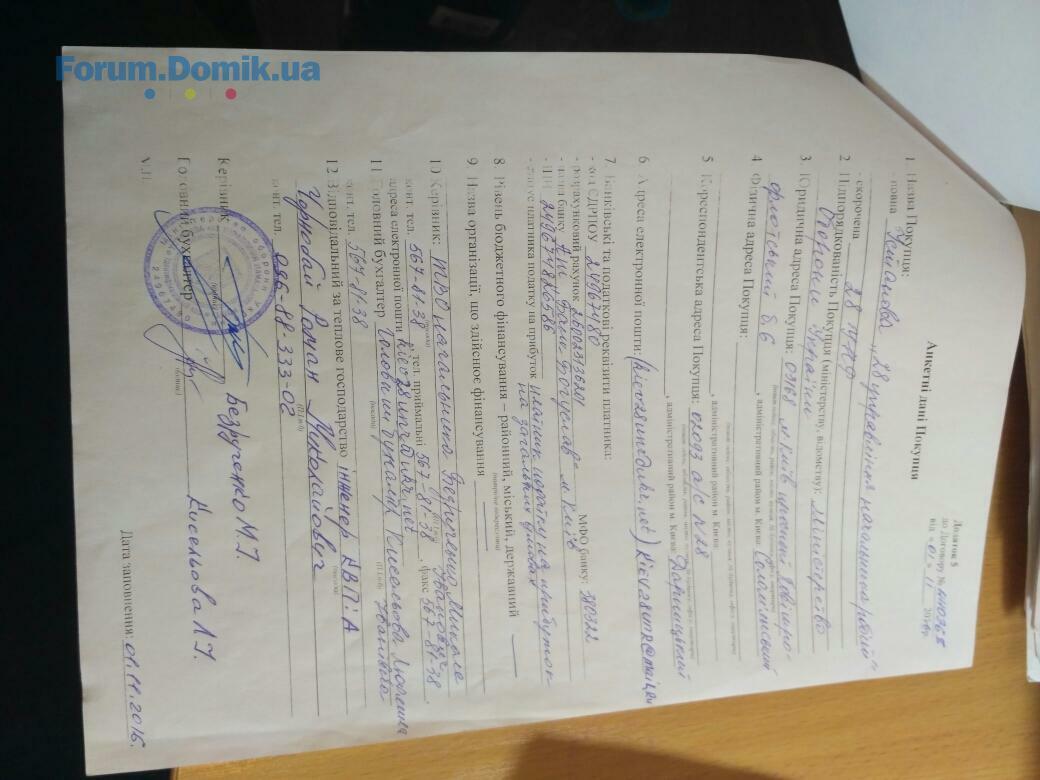 Forum.Domik.ua
Додаток 5
до Договору №
від «01» 11 2016р.
Анкетні дані Покупця
1 Назва Покупця:
- повна "28 управління начальника робіт"
- скорочена 28 УНР
2 Підпорядкованість Покупця (міністерству, відомству): Міністерство
Оборони України
3. Юридична адреса Покупця: 03168 м. Київ проспект Повітро-
флотський б. 6, адміністративний район м. Києва: Солом'янський
4 Фізична адреса Покупця:
, адміністративний район м. Києва
5 Кореспондентська адреса Покупця: 02093 а/с №
, адміністративний район м. Києва: Дарницький
6 Адреса електронної пошти: (kiev28unr@ukr.net)
7 Банківські та податкові реквізити платника:
- код ЄДРПОУ 24967480 МФО банку: 380322
- розрахунковий рахунок
- назва банку АТ "Банк Богуслав" м. Київ
- ІПН
- статус платника податку на прибуток платник податку на прибуток
на загальних умовах
8 Рівень бюджетного фінансування – районний, міський, державний
9 Назва організації, що здійснює фінансування
10 Керівник: ТВО начальника Безрученко Микола
Іванович
конт. тел. 567-81-38, тел. приймальні 567-81-38, факс 567-81-38
адреса електронної пошти kiev28unr@ukr.net
11 Головний бухгалтер Головний бухгалтер Кисельова Людмила
Іванівна
конт. тел. 567-81-38
12 Відповідальний за теплове господарство інженер КВПіА
Чорновой Роман Миколайович
конт. тел. 096-88-333-02
Керівник Безрученко М.І
Головний бухгалтер Кисельова Л.І.
М.П.
Дата заповнення: 01.11.2016.